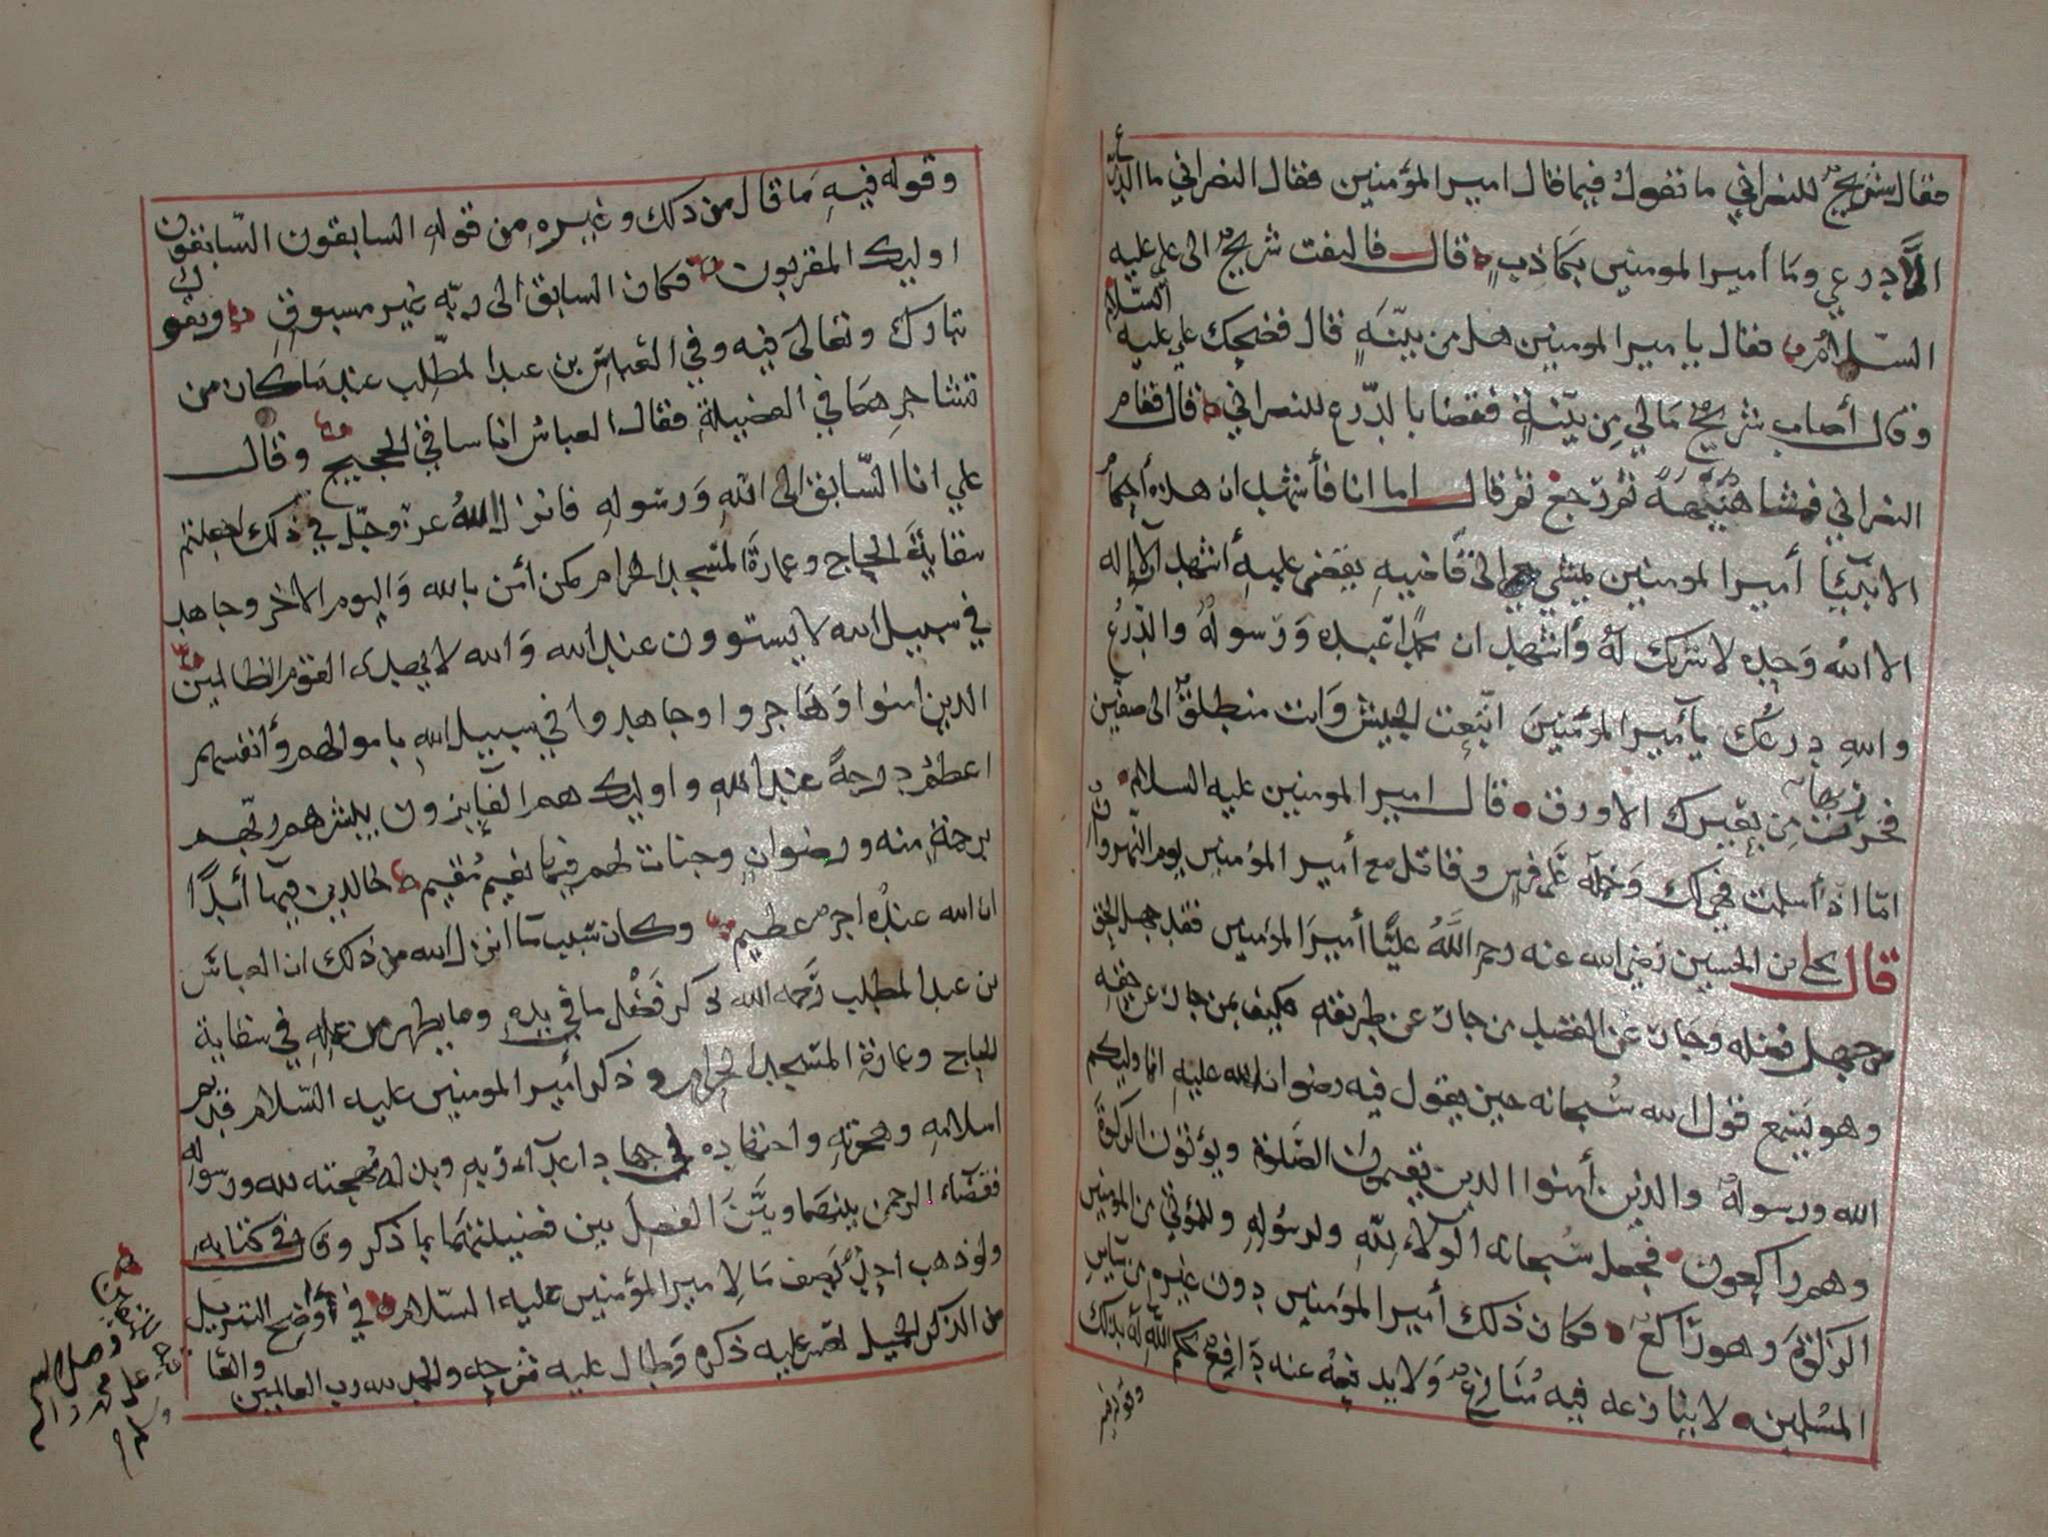 فقال شريح للنصراني ما تقول فيما قال امير المؤمنين فقال النصراني ما الدرع
الا درعي وما أمير المومنين بكاذب قال فالتفت شريح الى علي عليه
السلام فقال يا مير المومنين هل من بينة قال فضحك علي عليه السلام
وقال أصاب شريح مالي من بينة فقضا بالدرع للنصراني قال فقام
النصراني فمشا هنيهة ثم رجع ثم قال اما انا فأشهد ان هذه أحكام
الانبيا أمير المومنين يمشي الى قاضيه يقضي عليه أشهد الا اله
الا الله وحده لا شريك له وأشهد ان محمدا عبده ورسوله والدرع
والله درعك يا أمير المؤمنين اتبعت الجيش وانت منطلق الى صفين
فخرت بها من بعيرك الاورق قال امير المومنين عليه السلام
امّا اذ أسلمت فهي لك وحمله على فرس وقاتل مع أمير المؤمنين يوم النهروان
قال يحيى بن الحسين رضي الله عنه رحم الله عليًا أمير المؤمنين فقد جهل الحق
من جهل فضله وحاد عن القصد من حاد عن طريقه فكيف بمن حاد عن حقه
وهو يسمع قول الله سبحانه حين يقول فيه رضوان الله عليه انما وليكم
الله ورسوله والذين أمنوا الذين يقيمون الصلوة ويؤتون الزكوة
وهم راكعون فجعل سبحانه الولاء لله ولرسوله وللمؤتي من المومنين
الزكوة وهو راكع فكان ذلك أمير المؤمنين دون غيره من ساير
المسلمين لا ينازعه فيه منازع ولا يدفعه عنه دافع حكم الله له بذلك
وقوله فيه
وقوله فيه ما قال من ذلك وغيره من قوله السابقون السابقون
اوليك المقربون فكان السابق الى ربه غير مسبوق ويقول
تبارك وتعالى فيه وفي العباس بن عبد المطلب عند ما كان من
تشاجرهما في الفضيلة فقال العباس انا ساقي الحجيج وقال
علي انا السابق الى الله ورسوله فانزل الله عز وجل في ذلك اجعلتم
سقاية الحاج وعمارة المسجد الحرام كمن أمن بالله واليوم الاخر وجاهد
في سبيل الله لا يستوون عند الله والله لا يهدي القوم الظالمين
الذين امنوا وهاجروا وجاهدوا في سبيل الله باموالهم وأنفسهم
اعظم درجة عند الله واوليك هم الفايزون يبشرهم ربهم
برحمة منه ورضوان وجنات لهم فيها نعيم مقيم خالدين فيها أبدًا
ان الله عنده اجر عظيم وكان سبب ما انزل الله من ذلك ان العباس
بن عبد المطلب رحمه الله ذكر فضل ما في يده وما يظهر من عمله في سقاية
الحاج وعمارة المسجد الحرام وذكر أمير المومنين عليه السلام قديم
اسلامه وهجرته واجتهاده في جهاد اعداء ربه وبذله مهجته لله ورسوله
فقضاء الرحمن بينهما وبين الفصل بين فضيلتهما بما ذكر في كتابه
ولو ذهب احد يصف ما لامير المؤمنين عليه السلام في أوضح التنزيل
من الذكر الجميل لقصر عليه ذكره وطال عليه شرحه والحمد لله رب العالمين
وصلى الله
على محمد واله
وسلم